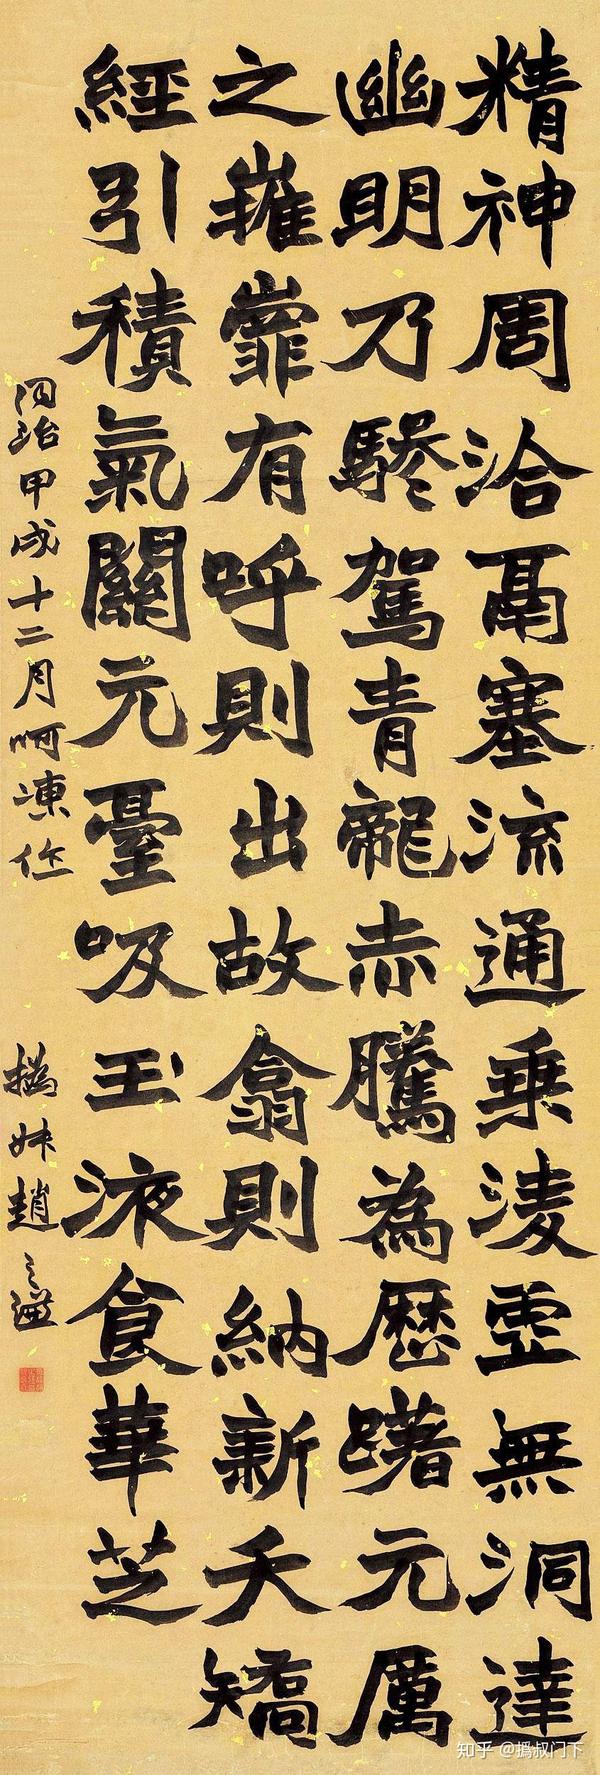 精神周洽鬲塞流通乘淩虛無洞達
幽明乃驂駕青龍赤騰為歷躇元厲
之摧嶵有呼則出故翕則納新夭矯
經引積氣關元臺吸玉液食華芝
同治甲戌十二月呵凍作 撝叔趙之謙
知乎 @撝叔门下